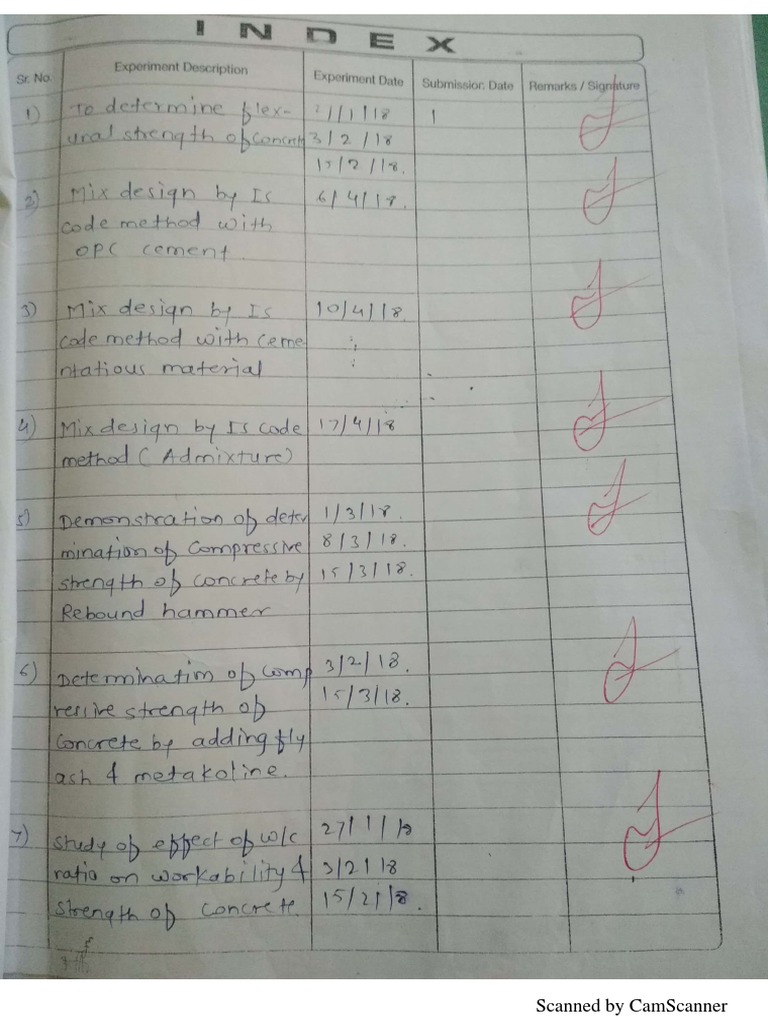 INDEX
Sr. No. Experiment Description Experiment Date Submission Date Remarks / Signature
1) To determine flex- 1/18
ural strength of concrete 3/2/18
15/2/18.
2) Mix design by Is 6/4/18.
code method with
OPC cement.
3) Mix design by Is 10/4/18.
code method with ceme
ntatious material
4) Mix design by Is code 17/4/18
method (Admixture)
5) Demonstration of deter 1/3/18.
mination of compressive 8/3/18.
strength of concrete by 15/3/18.
Rebound hammer
6) Determination of comp 3/2/18.
ressive strength of 15/3/18.
concrete by adding fly
ash & metakoline.
7) Study of effect of w/c 27/1/18
ratio on workability & 3/2/18
strength of concrete. 15/2/18.
Scanned by CamScanner